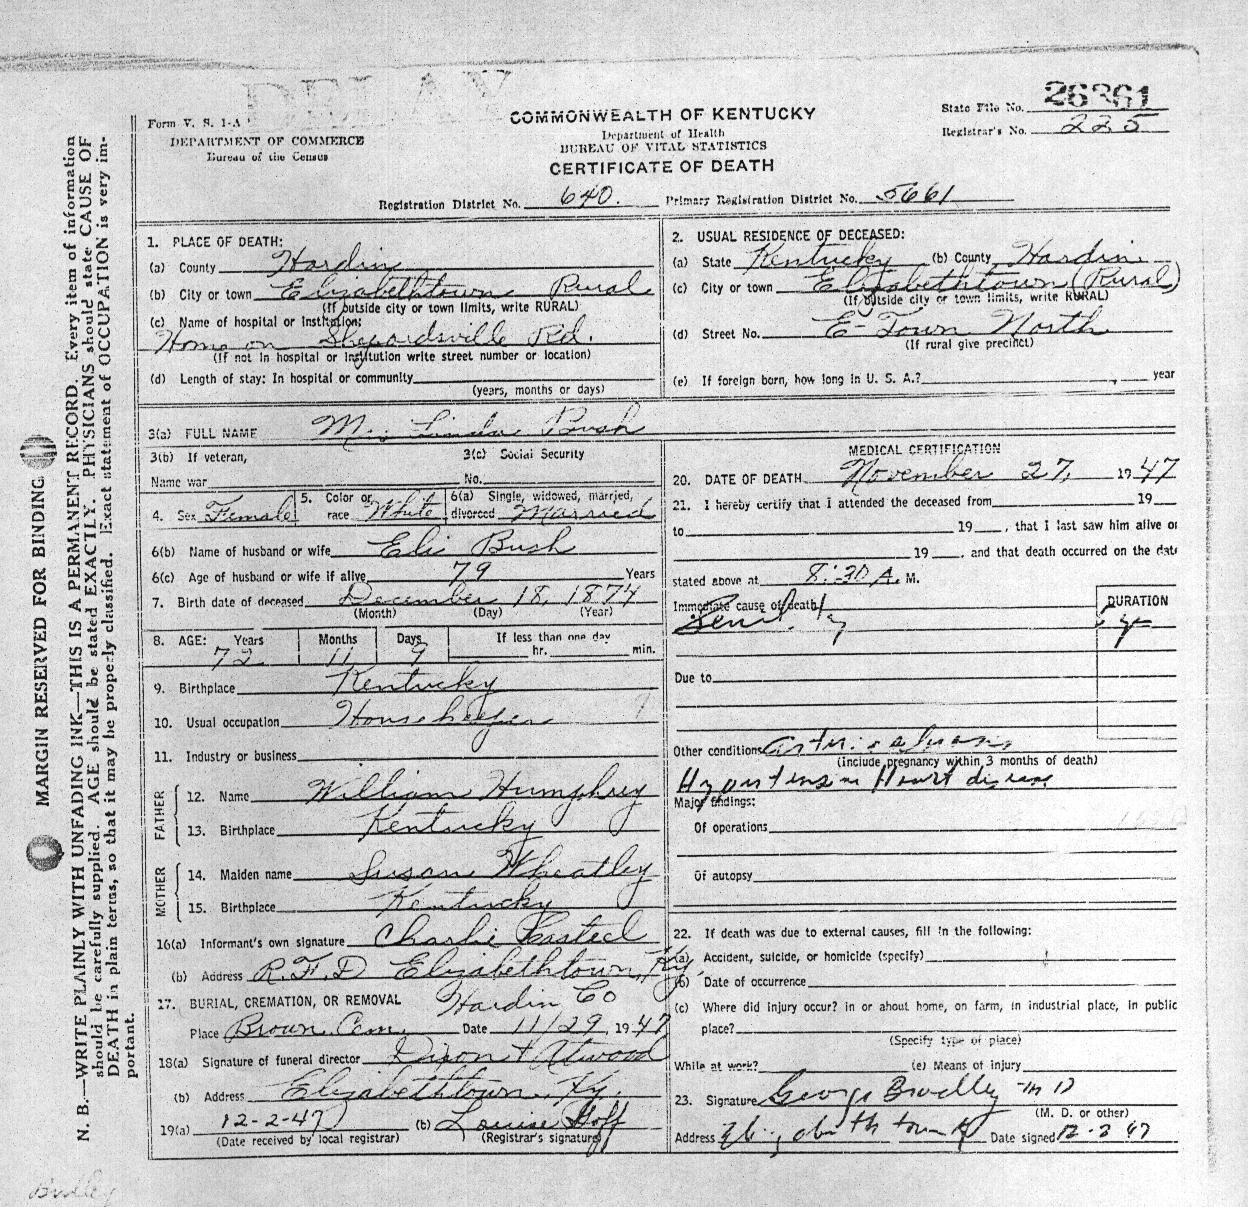 DELAY
Form V. S. 1-A
DEPARTMENT OF COMMERCE
Bureau of the Census
COMMONWEALTH OF KENTUCKY
Department of Health
BUREAU OF VITAL STATISTICS
CERTIFICATE OF DEATH
State File No. 26361
Registrar's No. 225
Registration District No. 640. Primary Registration District No. 5661
MARGIN RESERVED FOR BINDING
N. B.—WRITE PLAINLY WITH UNFADING INK—THIS IS A PERMANENT RECORD. Every item of information
should be carefully supplied. AGE should be stated EXACTLY. PHYSICIANS should state CAUSE OF
DEATH in plain terms, so that it may be properly classified. Exact statement of OCCUPATION is very im-
portant.
1. PLACE OF DEATH:
(a) County Hardin
(b) City or town Elizabethtown Rural
(If outside city or town limits, write RURAL)
(c) Name of hospital or institution:
Home on Shepardsville Rd.
(If not in hospital or institution write street number or location)
(d) Length of stay: In hospital or community
(years, months or days)
2. USUAL RESIDENCE OF DECEASED:
(a) State Kentucky (b) County Hardin
(c) City or town Elizabethtown (Rural)
(If outside city or town limits, write RURAL)
(d) Street No. E-Town North
(If rural give precinct)
(e) If foreign born, how long in U. S. A.? year
3(a) FULL NAME Mrs Linda Bush
3(b) If veteran,
Name war
3(c) Social Security
No.
4. Sex Female 5. Color or race White 6(a) Single, widowed, married, divorced Married
6(b) Name of husband or wife Eli Bush
6(c) Age of husband or wife if alive 79 Years
7. Birth date of deceased December 18, 1874
(Month) (Day) (Year)
8. AGE: Years Months Days If less than one day
72 11 9 hr. min.
9. Birthplace Kentucky
10. Usual occupation Housekeeper
11. Industry or business
FATHER
12. Name William Humphrey
13. Birthplace Kentucky
MOTHER
14. Maiden name Susan Wheatley
15. Birthplace Kentucky
16(a) Informant's own signature Charlie
(b) Address R.F.D Elizabethtown, Ky.
17. BURIAL, CREMATION, OR REMOVAL Hardin Co
Place Brown Cem. Date 11/29 1947
18(a) Signature of funeral director Dixon + Atwood
(b) Address Elizabethtown, Ky.
19(a) 12-2-47 (b) Louise Goff
(Date received by local registrar) (Registrar's signature)
MEDICAL CERTIFICATION
20. DATE OF DEATH November 27, 1947
21. I hereby certify that I attended the deceased from 19
to 19 , that I last saw him alive or
19 , and that death occurred on the date
stated above at 8:30 A. M.
Immediate cause of death DURATION
Senility
Due to
Other conditions
(include pregnancy within 3 months of death)
Hypertensive Heart disease
Major findings:
Of operations
Of autopsy
22. If death was due to external causes, fill in the following:
(a) Accident, suicide, or homicide (specify)
(b) Date of occurrence
(c) Where did injury occur? in or about home, on farm, in industrial place, in public
place?
(Specify type of place)
While at work? (e) Means of injury
23. Signature George Bradley M D
(M. D. or other)
Address Elizabethtown Ky Date signed 12-2 47